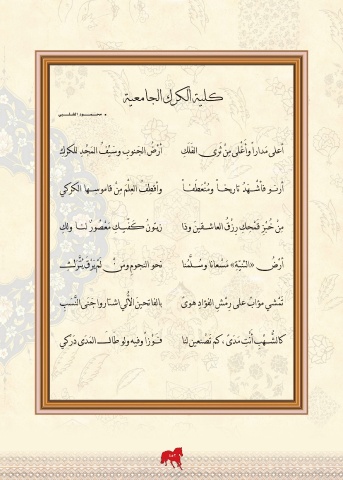 كلية الكرك الجامعية
أعلى مَداراً وأَغْلى مِنْ ثرى الفلك أرْضُ الجنوب وسَيْفُ المَجْد للكرك
أرنو فأشْهَدُ تاريخاً ومُنْعَطفاً وأقطِفُ العِلْمَ مِنْ قاموسِها الكركي
مِن خُبْزِ قَمْحِكِ رِزْقُ العاشقين وذا زيتونُ كَفّيكِ مَعْصُورٌ لنا ولك
أرْضُ «الثنيّة» مَسْعانا وسُلَّمنا نحو النجوم ومَنْ لَمْ يَرْقَ
تمْشي مؤابٌ على رمْشِ الفؤادِ هوىً بالفاتحين الأُلي اشتاروا جَنى النُّسُب
كالشُّهْبِ أنْتِ مَدَىً، كم تَصْنَعين لنا فَوْزاً وفيه ولو طالَ المَدى دَرَكي